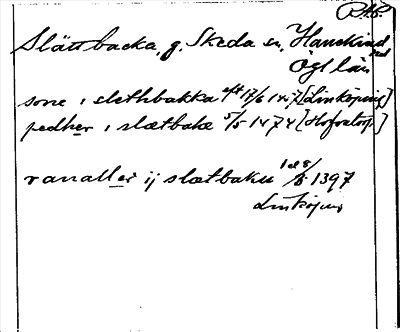 Slättbacka, g. Skeda sn, Hanekind
Ögl län
sone i slethbakka eft 17/6 1457 [Linköping]
pedher i slætbake 5/5 1474 [Hofvetorp]
ranaller ij slætbaku 1 el 8/8 1397
Linköping